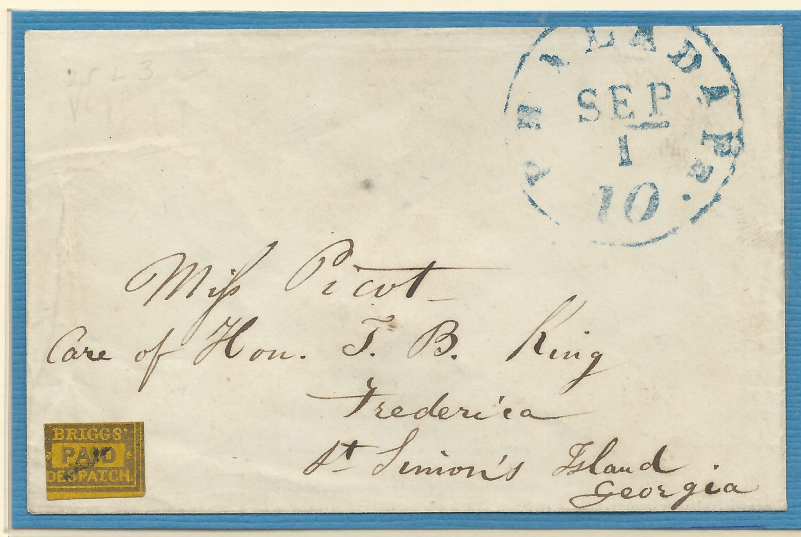 PHILADA Pa.
SEP
1
10
Miss Picot
Care of Hon. T. B. King
Frederica
St Simon's Island
Georgia
BRIGGS'
PAID
DESPATCH.